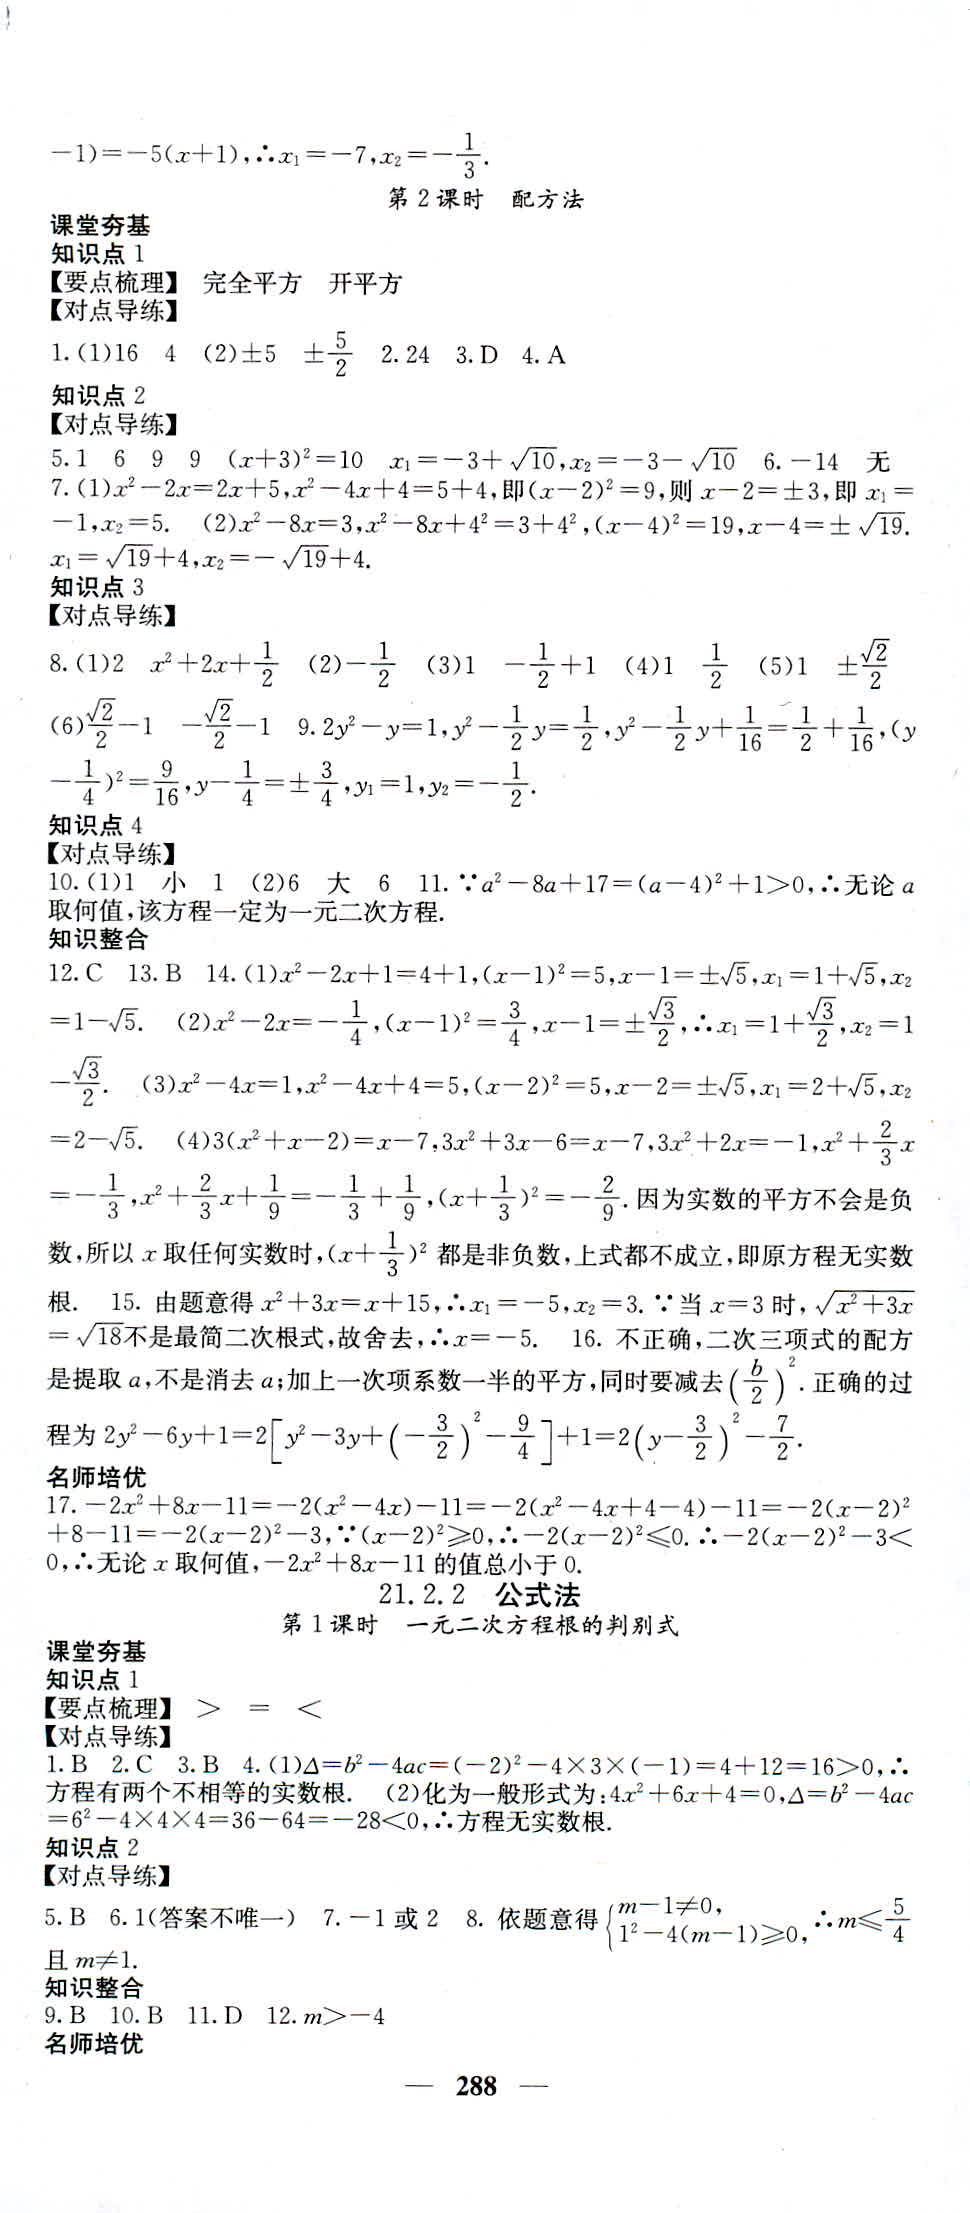 −1)=−5(x+1),∴x₁=−7,x₂=−1/3.
第2课时　配方法
课堂夯基
知识点1
【要点梳理】　完全平方　开平方
【对点导练】
1.(1)16　4　(2)±5　±5/2　2.24　3.D　4.A
知识点2
【对点导练】
5.1　6　9　9　(x+3)²=10　x₁=−3+√10,x₂=−3−√10　6.−14　无
7.(1)x²−2x=2x+5,x²−4x+4=5+4,即(x−2)²=9,则x−2=±3,即x₁=
−1,x₂=5.　(2)x²−8x=3,x²−8x+4²=3+4²,(x−4)²=19,x−4=±√19.
x₁=√19+4,x₂=−√19+4.
知识点3
【对点导练】
8.(1)2　x²+2x+1/2　(2)−1/2　(3)1　−1/2+1　(4)1　1/2　(5)1　±√2/2
(6)√2/2−1　−√2/2−1　9.2y²−y=1,y²−1/2y=1/2,y²−1/2y+1/16=1/2+1/16,(y
−1/4)²=9/16,y−1/4=±3/4,y₁=1,y₂=−1/2.
知识点4
【对点导练】
10.(1)1　小　1　(2)6　大　6　11.∵a²−8a+17=(a−4)²+1>0,∴无论a
取何值,该方程一定为一元二次方程.
知识整合
12.C　13.B　14.(1)x²−2x+1=4+1,(x−1)²=5,x−1=±√5,x₁=1+√5,x₂
=1−√5.　(2)x²−2x=−1/4,(x−1)²=3/4,x−1=±√3/2,∴x₁=1+√3/2,x₂=1
−√3/2.　(3)x²−4x=1,x²−4x+4=5,(x−2)²=5,x−2=±√5,x₁=2+√5,x₂
=2−√5.　(4)3(x²+x−2)=x−7,3x²+3x−6=x−7,3x²+2x=−1,x²+2/3x
=−1/3,x²+2/3x+1/9=−1/3+1/9,(x+1/3)²=−2/9.因为实数的平方不会是负
数,所以x取任何实数时,(x+1/3)²都是非负数,上式都不成立,即原方程无实数
根.　15. 由题意得x²+3x=x+15,∴x₁=−5,x₂=3.∵当x=3时,√(x²+3x)
=√18不是最简二次根式,故舍去,∴x=−5.　16. 不正确,二次三项式的配方
是提取a,不是消去a;加上一次项系数一半的平方,同时要减去(b/2)².正确的过
程为2y²−6y+1=2[y²−3y+(−3/2)²−9/4]+1=2(y−3/2)²−7/2.
名师培优
17.−2x²+8x−11=−2(x²−4x)−11=−2(x²−4x+4−4)−11=−2(x−2)²
+8−11=−2(x−2)²−3,∵(x−2)²≥0,∴−2(x−2)²≤0.∴−2(x−2)²−3<
0,∴无论x取何值,−2x²+8x−11的值总小于0.
21.2.2　公式法
第1课时　一元二次方程根的判别式
课堂夯基
知识点1
【要点梳理】　>　=　<
【对点导练】
1.B　2.C　3.B　4.(1)Δ=b²−4ac=(−2)²−4×3×(−1)=4+12=16>0,∴
方程有两个不相等的实数根.　(2)化为一般形式为:4x²+6x+4=0,Δ=b²−4ac
=6²−4×4×4=36−64=−28<0,∴方程无实数根.
知识点2
【对点导练】
5.B　6.1(答案不唯一)　7.−1或2　8. 依题意得{m−1≠0, 1²−4(m−1)≥0, ∴m≤5/4
且m≠1.
知识整合
9.B　10.B　11.D　12.m>−4
名师培优
— 288 —